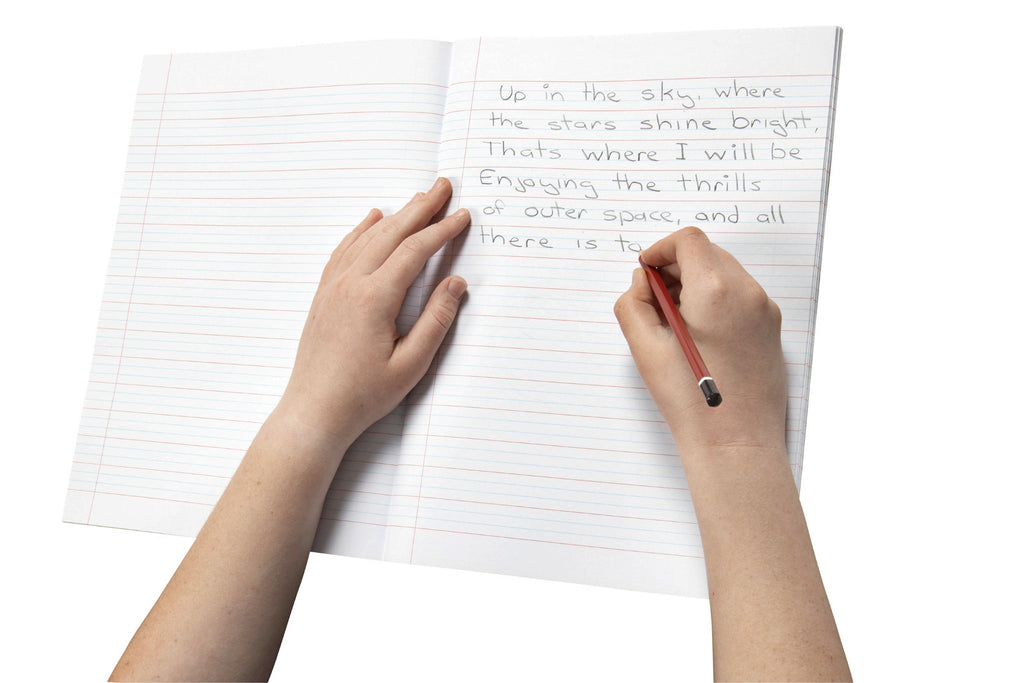 Up in the sky, where
the stars shine bright,
Thats where I will be
Enjoying the thrills
of outer space, and all
there is to